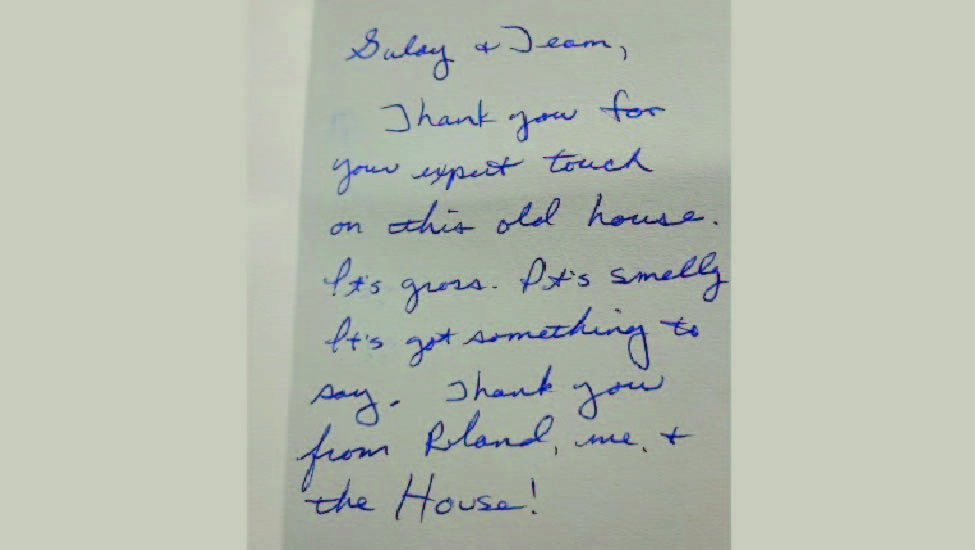 Sulay & Team,
Thank you for
your expert touch
on this old house.
It's gross. It's smelly
It's got something to
say. Thank you
from Roland, me, &
the House!